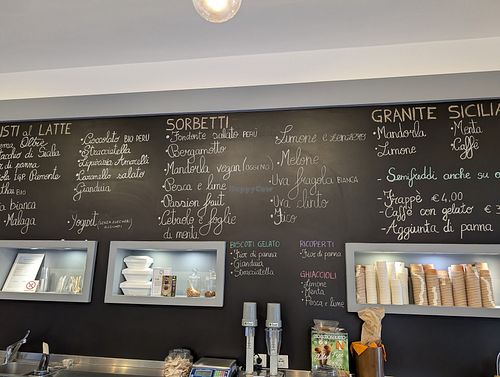 STI al LATTE
Oltre
di Sicilia
di panna
Piemonte
Bio
bianca
Malaga
Cioccolato BIO PERÙ
Stracciatella
Liquirizia Amarelli
Caramello salato
Gianduia
Yogurt (SENZA ZUCCHERI
SORBETTI
Fondente PERÙ
Bergamotto
Mandorla vegan (OGGI NO)
Pesca e lime
Passion fruit
Cetriolo foglie
di menta
Limone e zenzero
Melone
Uva fragola BIANCA
Uva
Fico
GRANITE SICILIA
Mandorla
Limone
Menta
Caffè
Semifreddi anche su o
Frappè €4,00
Caffè con gelato €3
Aggiunta di panna
BISCOTTI GELATO
Fior di panna
Gianduia
Stracciatella
RICOPERTI
Fior di panna
GHIACCIOLI
Limone
Menta
Pesca e lime
HappyCow